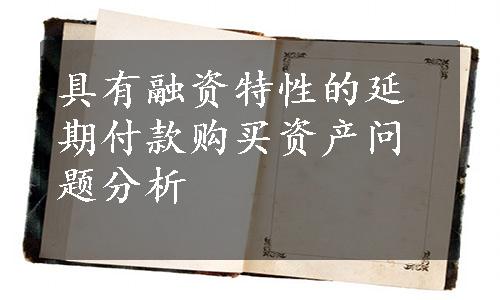 具有融资特性的延
期付款购买资产问
题分析